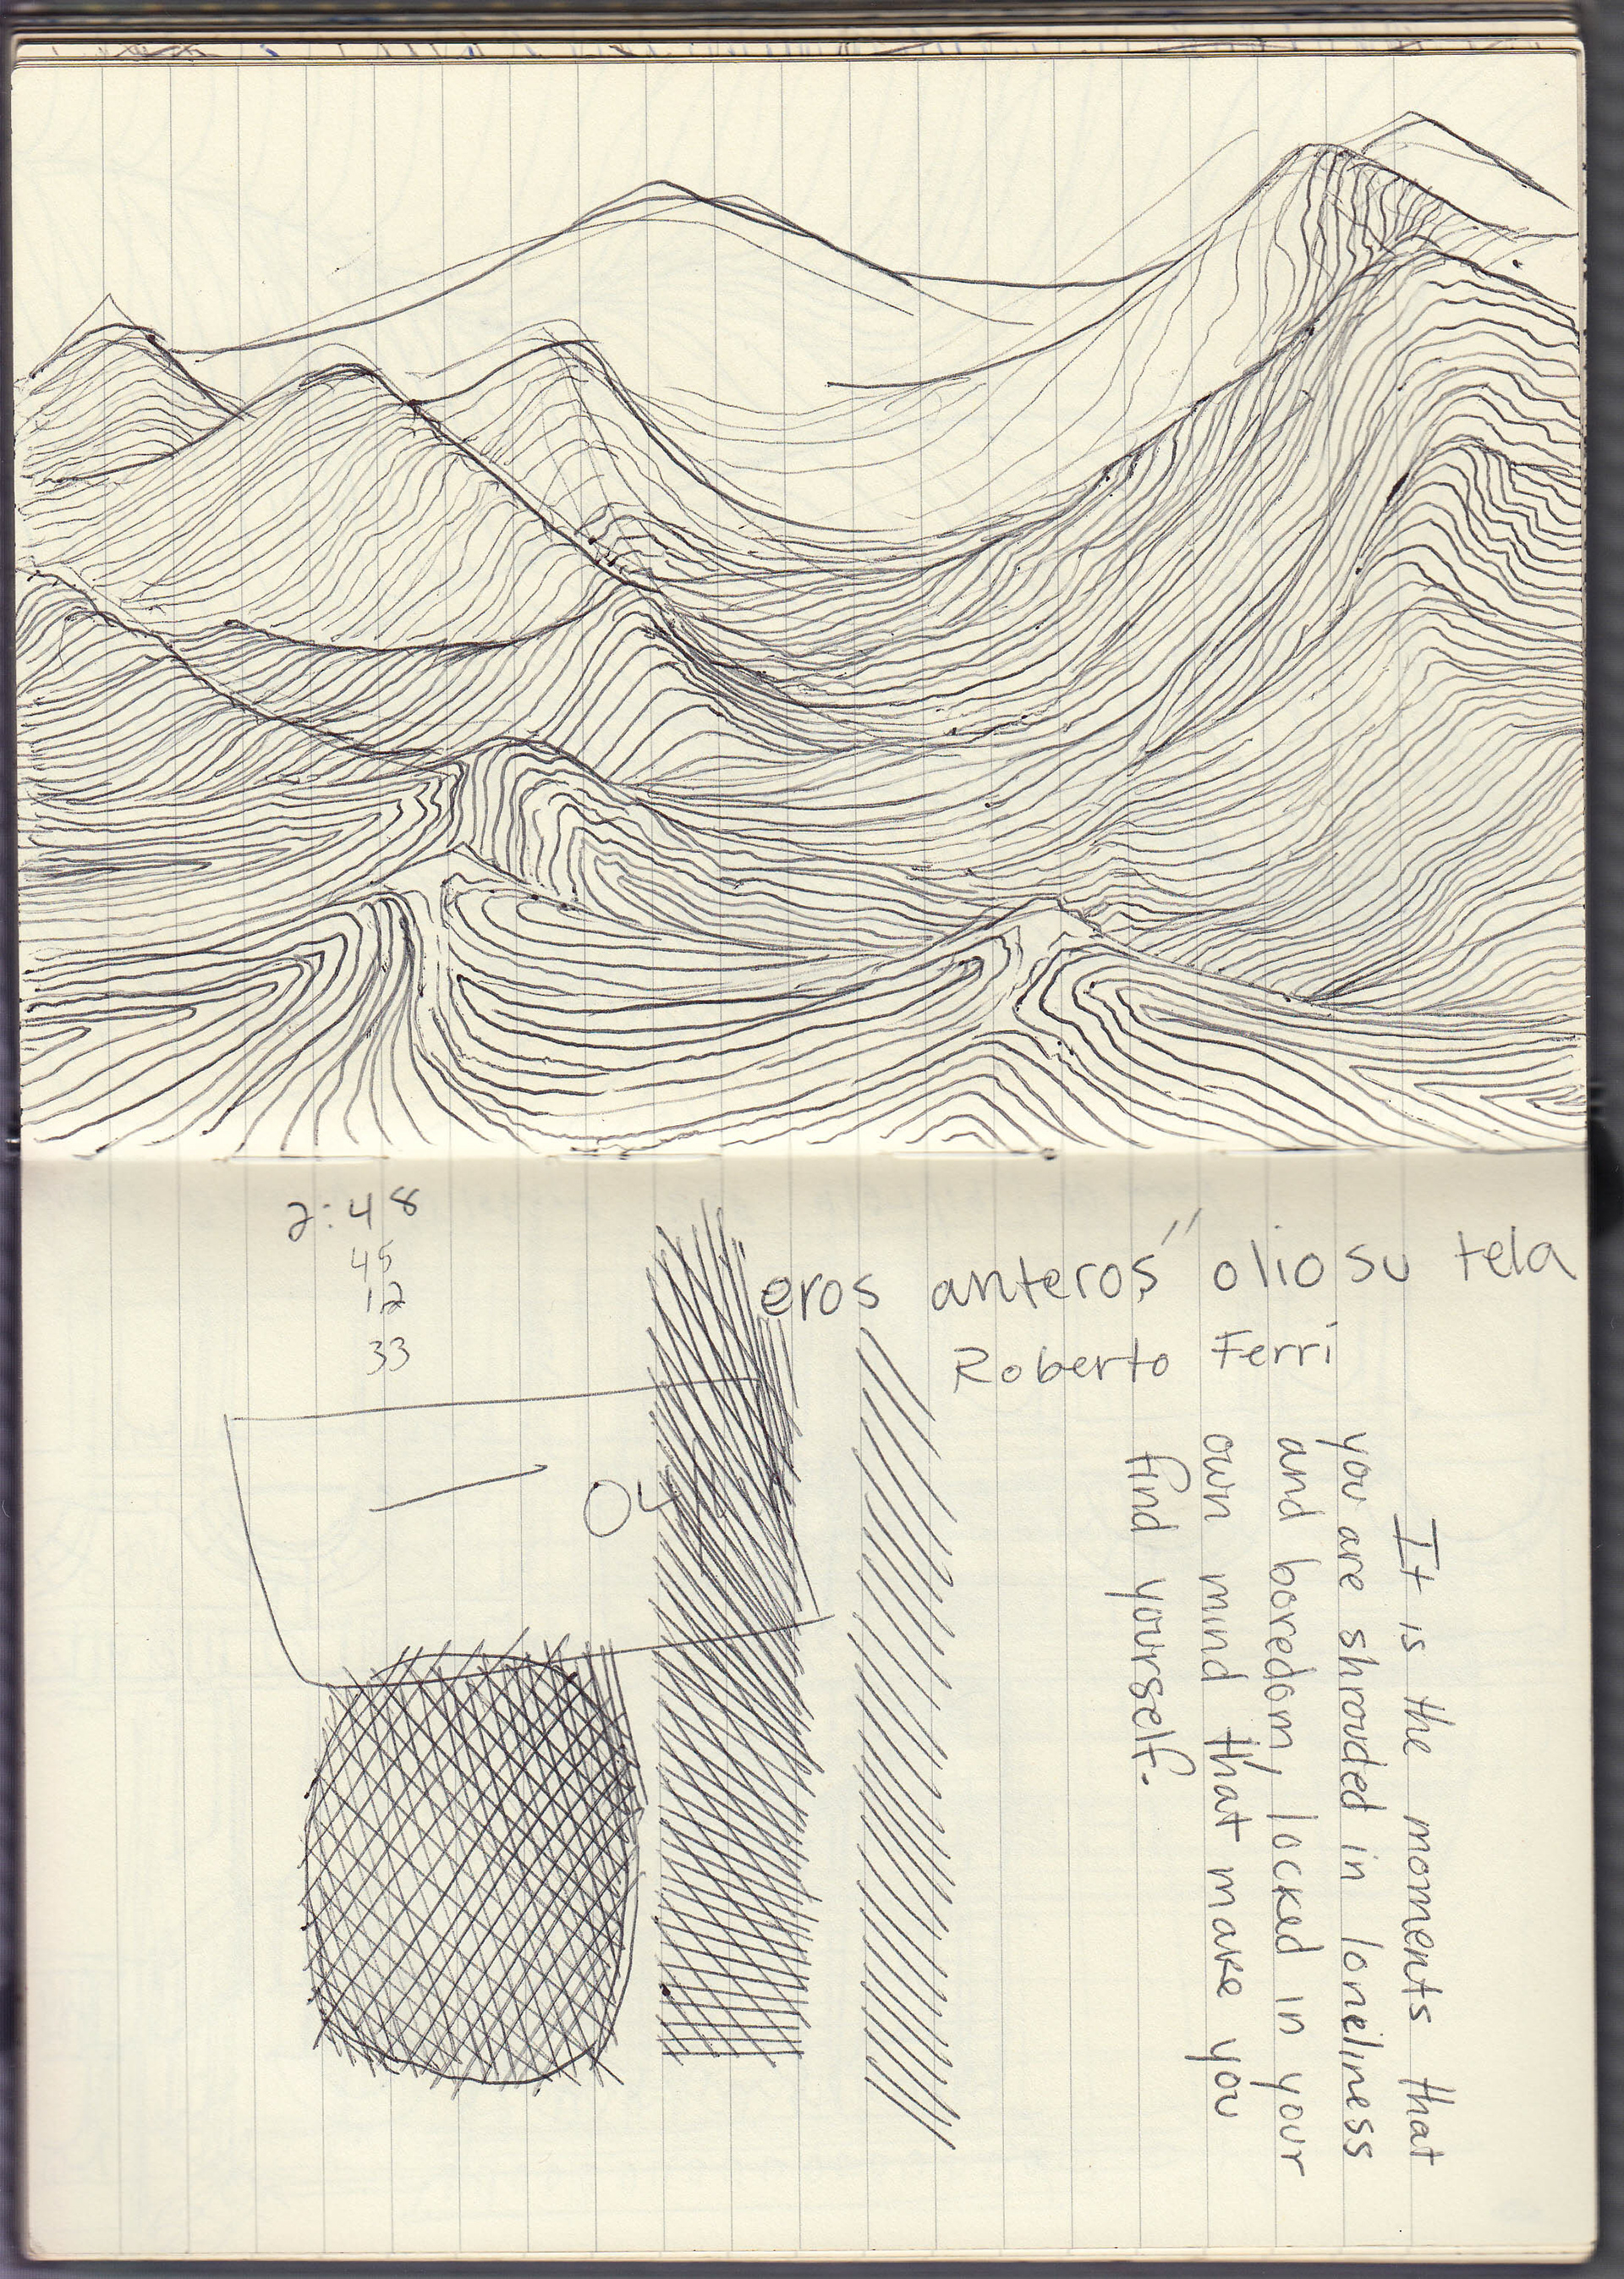 2:48
45
12
33
eros anteros" olio su tela
Roberto Ferri
It is the moments that
you are shrouded in loneliness
and boredom, locked in your
own mind that make you
find yourself.
04